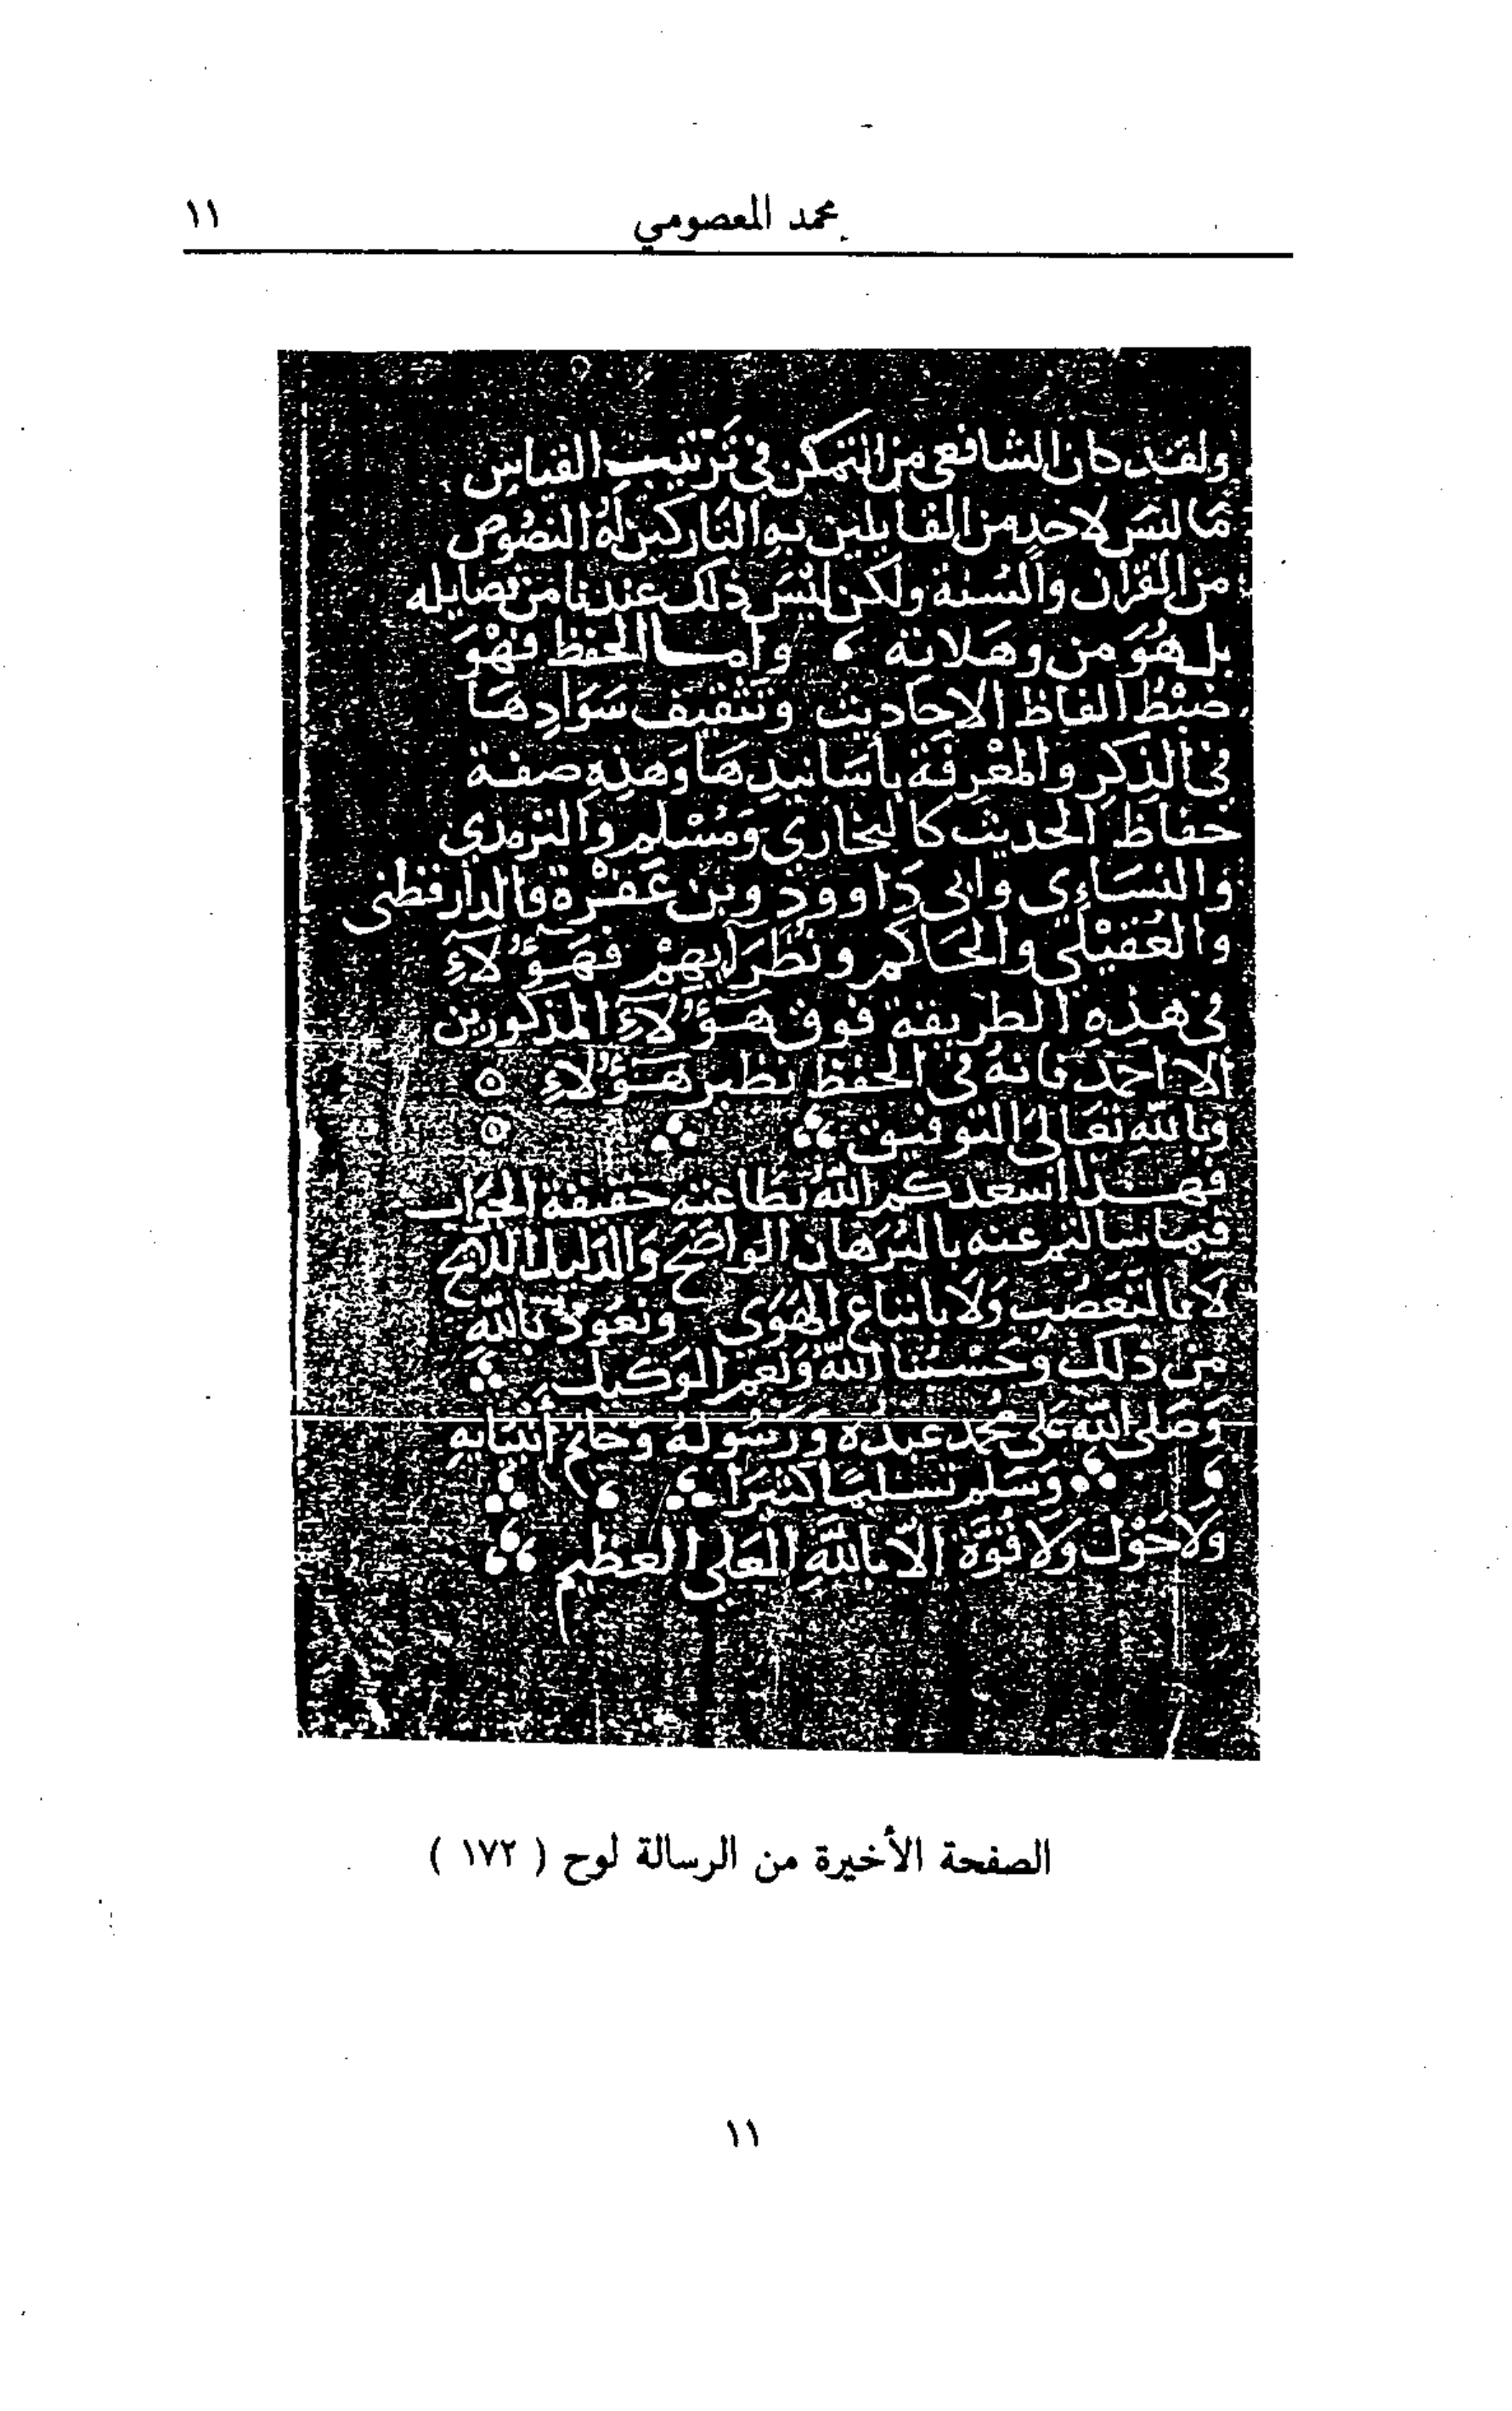 محمد المعصومي ١١
ولقد كان الشافعي من التمكن في ترتيب القياس
ما ليس لاحد من القايلين به التاركين له النصوص
من القرآن والسنة ولكن ليس ذلك عندنا من فضايله
بل هُوَ من وهلاته ، وأما الحفظ فهْوَ
ضبْطُ الفاظ الاحاديث وتثقيف سَوَادِهَا
في الذكرِ والمعْرفة بأسَانيدِهَا وَهذِهِ صفة
حفاظ الحديث كالبخاري ومُسْلم والترمذي
والنسَاءِى وابي دَاوود وبن عَقدْة والدارقطني
والعُقيْلي والحَاكم ونُظرَآيهِمْ فهَؤُلآءِ
في هذِهِ الطريقة فوق هَؤُلآءِ المذكورين
الا احمد فانهُ في الحفظ نظير هَؤُلاءِ ه
وبالله تعَالى التوفيق ه
فهذا أسعدكم اللهُ بطَاعته حقيقة الجَوَاب
فيما سَالتم عنه بالبُرهَان الواضح وَالدَليل اللايح
لَا بالتَعَصُب وَلَا باتباع الهَوَى ونعُوذ باللهِ
من ذلك وحَسْبُنا اللهُ وَنعم الوَكيل
وَصَلى اللّه عَلى محُمد عبدُه وَرَسُولهُ وخَاتم أنبيَايهِ
، وَسَلم تسليمًا كثيرَا ،
ولَا حَوْلَ وَلَا قُوَّة الّا باللّهِ العَلى العظيم
الصفحة الأخيرة من الرسالة لوح ( ١٧٢ )
١١